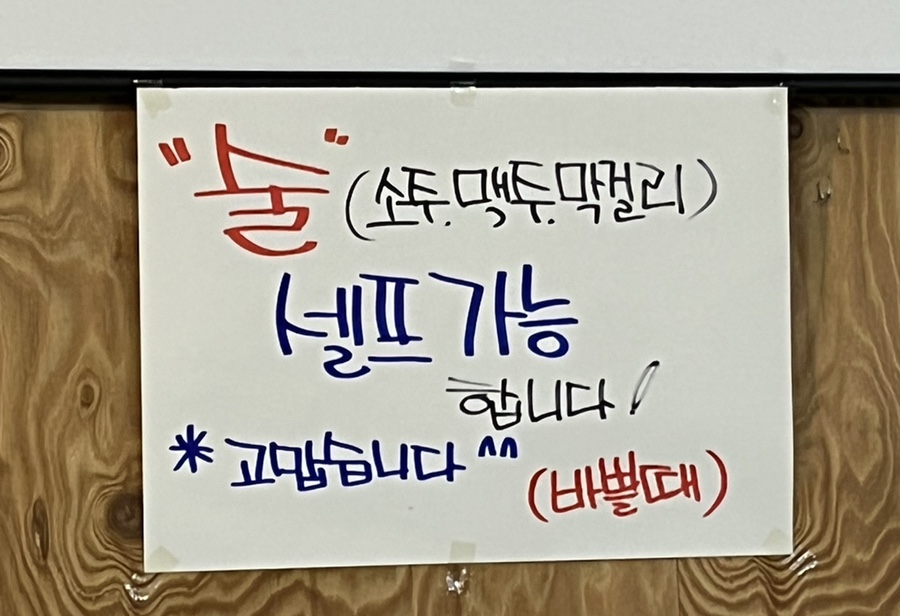 "술" (소주.맥주.막걸리)
셀프 가능
합니다!
* 고맙습니다 ^^
(바쁠때)